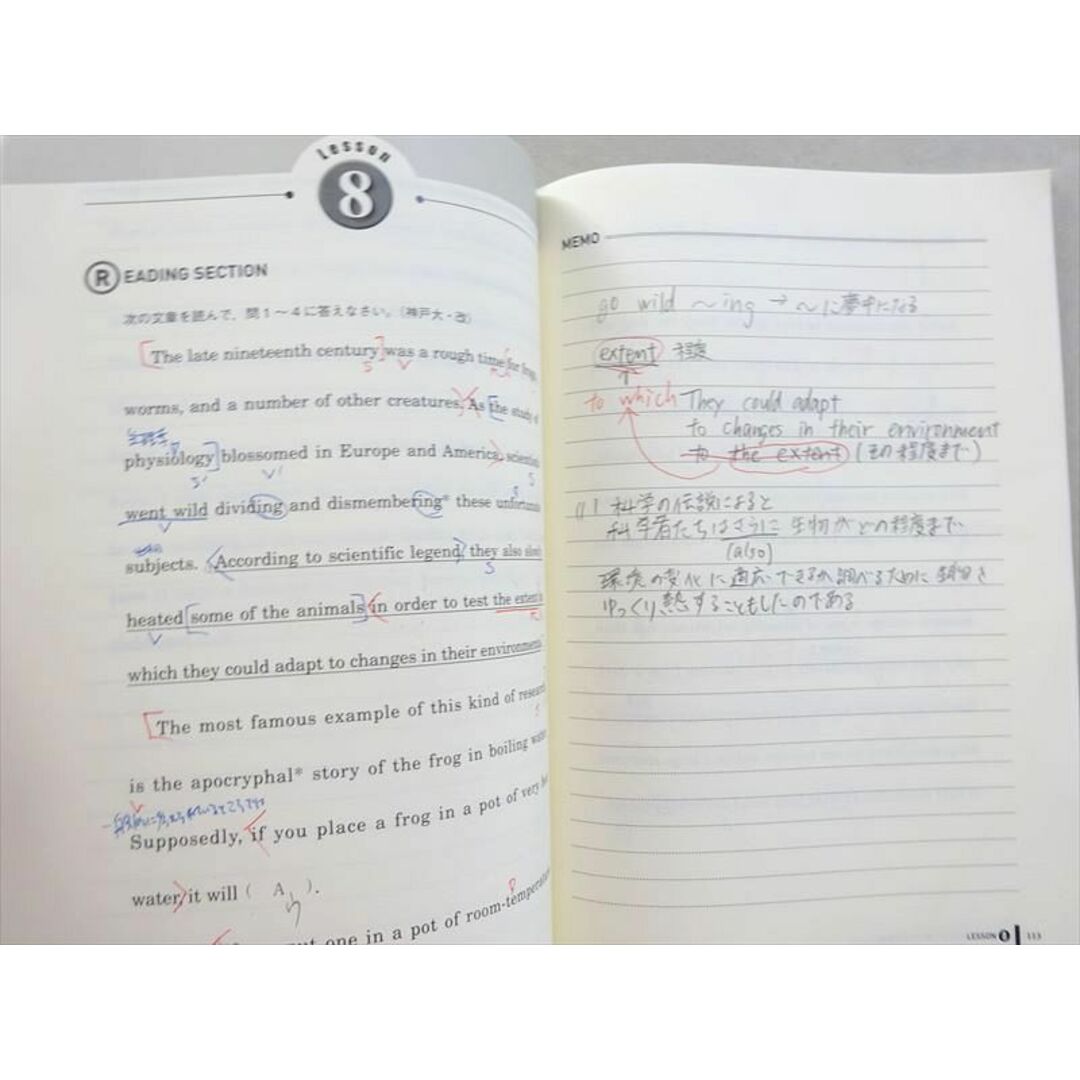 Lesson
8
READING SECTION
次の文章を読んで，問1～4に答えなさい。（神戸大・改）
The late nineteenth century was a rough time for frogs,
S V
worms, and a number of other creatures. As the study of
生理学
physiology blossomed in Europe and America, scientists
S' V' S
went wild dividing and dismembering* these unfortunate
V
subjects. According to scientific legend, they also slowly
S
heated some of the animals in order to test the extent to
V
which they could adapt to changes in their environment
The most famous example of this kind of research
S
is the apocryphal* story of the frog in boiling water
V
Supposedly, if you place a frog in a pot of very hot
water, it will ( A ).
one in a pot of room-temperature
MEMO
go wild ～ing → ～に夢中になる
extent 程度
to which They could adapt
to changes in their environment
to the extent (その程度まで)
(1) 科学の伝説によると
科学者たちはさらに 生物がどの程度まで
(also)
環境の変化に適応できるか調べるために 動物を
ゆっくり熱することもしたのである
LESSON 8 113